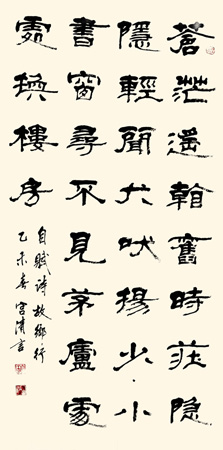 蒼茫遥翰舊時莊隐
隱輕聞犬吠揚少小
書窗尋不見茅廬處
處換樓房
自賦诗故鄉行
乙未春宫清